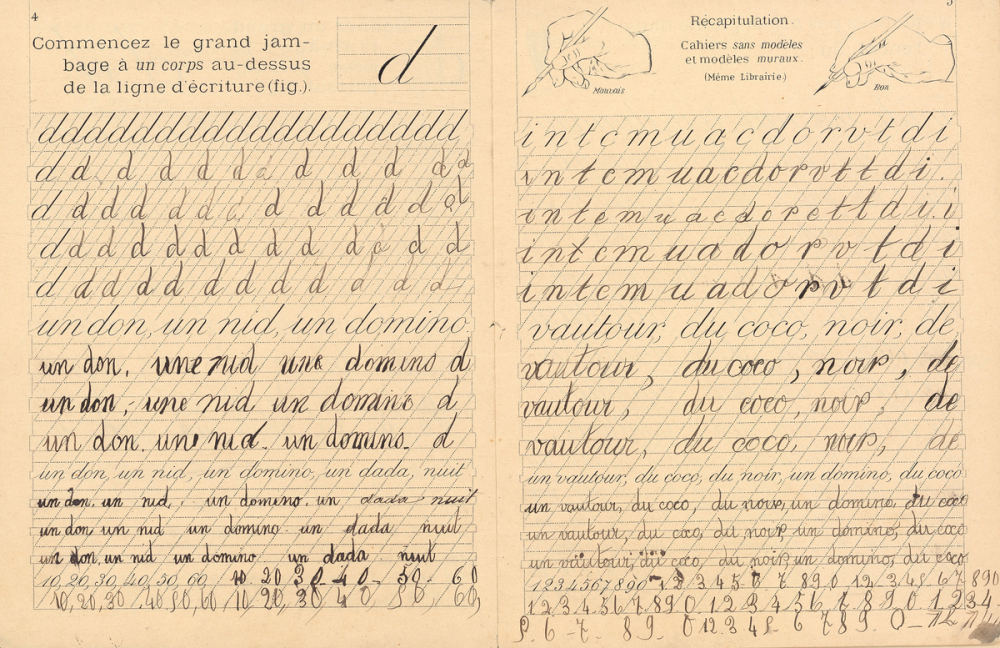 4
Commencez le grand jam-
bage à un corps au-dessus
de la ligne d'écriture (fig.).
d
ddddddddddddddddddddd
d d d d d d d d d d d d d
d d d d d d d d d d d d d d
d d d d d d d d d d d d d
d d d d d d d d d d d d
un don, un nid, un domino
un don, une nid une domino d
un don, une nid un domino d
un don. une nid. un domino. d
un don, un nid, un domino, un dada, nuit
un don. un nid, un domeno. un dada nuit
un don un nid un domino un dada nuit
un don, un nid un domino un dada nuit
10, 20, 30, 40, 50, 60 10 20 30 40 50 60
10, 20, 30 40 50, 60 10 20, 30 40 50, 60,
5
Mauvais
Récapitulation.
Cahiers sans modèles
et modèles muraux.
(Même Librairie.)
Bon
i n t c m u a c d o r v t d i
i n t c m u a c d o r v t t d i .
i n t e m u a c d o r e t t d i i
i n t c m u a d o r v t d i
i n t e m u a d o r v t d i
vautour, du coco, noir, de
vautour, du coco, noir, de
vautour, du coco, noir, de
vautour, du coco, noir, de
un vautour, du coco, du noir, un domino, du coco
un vautour, du coco, du noir, un domino, du coco
un vautour, du coco, du noir un domino, du coco
un vautour, du coco, du noir, un domino, du coco
1234567890 12 3 4 5 6 7 8 9 0 12 3 4 5 6 7 890
1 2 3 4 5 6 7 8 9 0 1 2 3 4 5 6 7 8 9 0 1 2 3 4
5. 6 - 7. 8 9. 0 12 3 4 5 6 7 8 9. 0